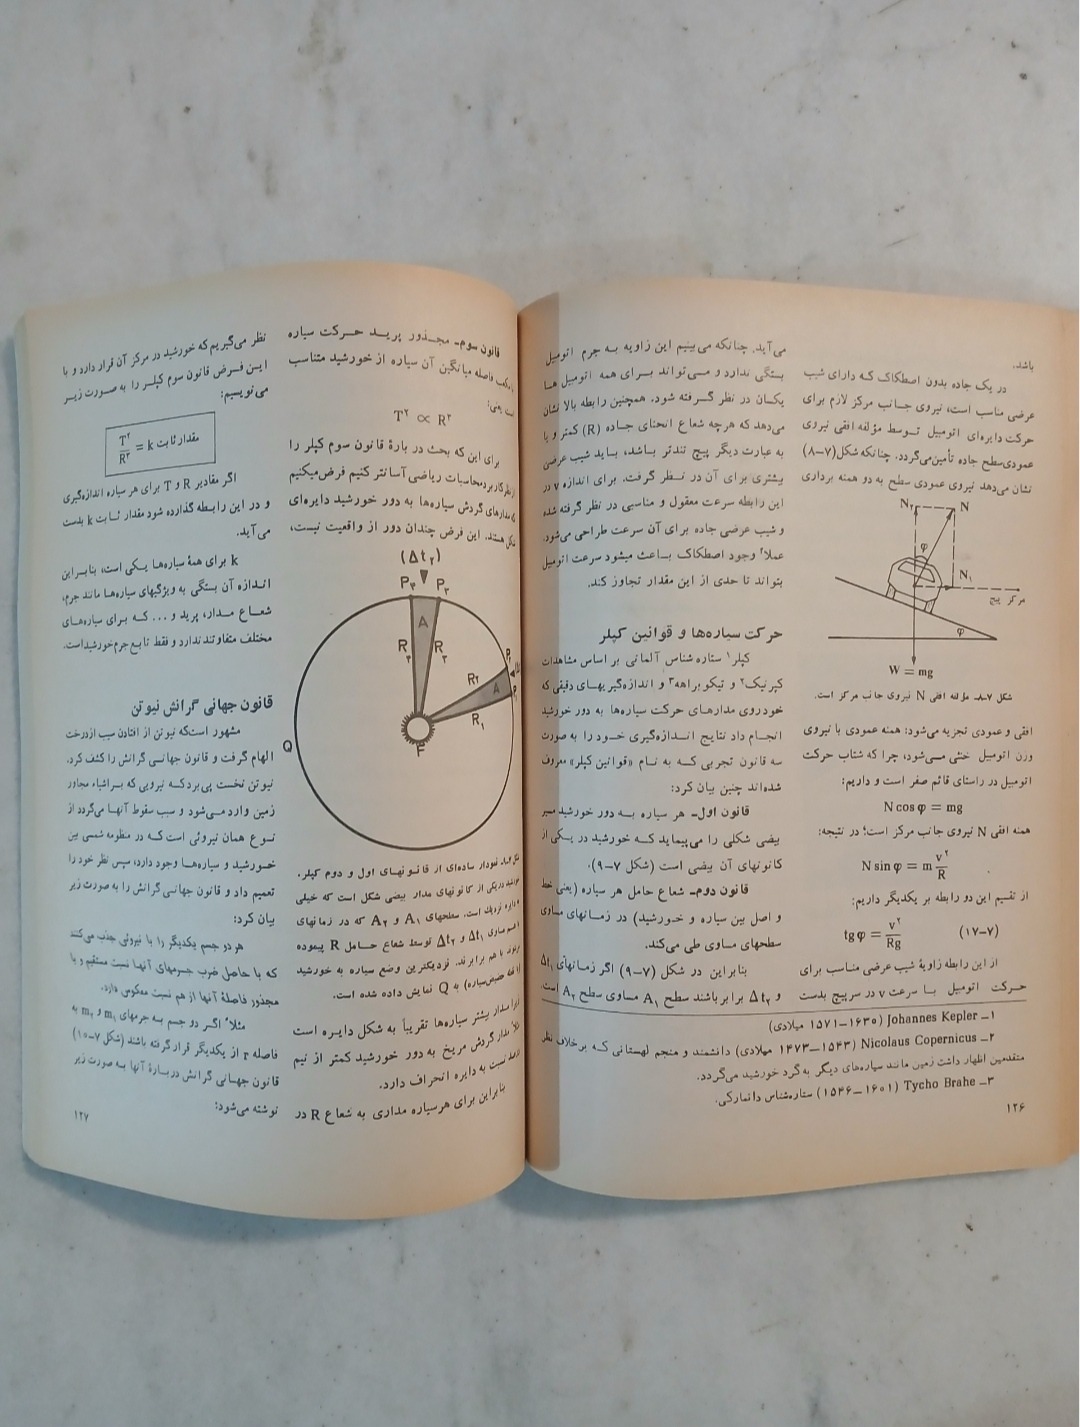 باشد.
در یک جاده بدون اصطکاک که دارای شیب
عرضی مناسب است، نیروی جانب مرکز لازم برای
حرکت دایره‌ای اتومبیل توسط مؤلفه افقی نیروی
عمودی سطح جاده تأمین می‌گردد. چنانکه شکل (۷–۸)
نشان می‌دهد نیروی عمودی سطح به دو همنه برداری
N₂ N
φ
N₁
مرکز پیچ
φ
W = mg
شکل ۷–۸ـ مؤلفه افقی N نیروی جانب مرکز است.
افقی و عمودی تجزیه می‌شود: همنه عمودی با نیروی
وزن اتومبیل خنثی می‌شود، چرا که شتاب حرکت
اتومبیل در راستای قائم صفر است و داریم:
N cos φ = mg
همنه افقی N نیروی جانب مرکز است؛ در نتیجه:
N sin φ = m v²/R
از تقسیم این دو رابطه بر یکدیگر داریم:
(۷–۱۷) tg φ = v²/Rg
از این رابطه زاویهٔ شیب عرضی مناسب برای
حرکت اتومبیل با سرعت v در سرپیچ بدست
می‌آید. چنانکه می‌بینیم این زاویه به جرم اتومبیل
بستگی ندارد و می‌تواند برای همه اتومبیل ها
یکسان در نظر گرفته شود. همچنین رابطه بالا نشان
می‌دهد که هرچه شعاع انحنای جاده (R) کمتر و یا
به عبارت دیگر پیچ تندتر باشد، باید شیب عرضی
بیشتری برای آن در نظر گرفت. برای اندازه v در
این رابطه سرعت معقول و مناسبی در نظر گرفته شده
و شیب عرضی جاده برای آن سرعت طراحی می‌شود.
عملاً وجود اصطکاک باعث میشود سرعت اتومبیل
بتواند تا حدی از این مقدار تجاوز کند.
حرکت سیاره‌ها و قوانین کپلر
کپلر۱ ستاره شناس آلمانی بر اساس مشاهدات
کپرنیک۲ و تیکوبراهه۳ و اندازه‌گیریهای دقیقی که
خود روی مدارهای حرکت سیاره‌ها به دور خورشید
انجام داد نتایج اندازه‌گیری خود را به صورت
سه قانون تجربی که به نام «قوانین کپلر» معروف
شده‌اند چنین بیان کرد:
قانون اول– هر سیاره به دور خورشید مسیر
بیضی شکلی را می‌پیماید که خورشید در یکی از
کانونهای آن بیضی است (شکل ۷–۹).
قانون دوم– شعاع حامل هر سیاره (یعنی خط
و اصل بین سیاره و خورشید) در زمانهای مساوی
سطحهای مساوی طی می‌کند.
بنابراین در شکل (۷–۹) اگر زمانهای Δt₁
و Δt₂ برابر باشند سطح A₁ مساوی سطح A₂ است.
۱– Johannes Kepler (۱۶۳۰–۱۵۷۱ میلادی)
۲– Nicolaus Copernicus (۱۵۴۳–۱۴۷۳ میلادی) دانشمند و منجم لهستانی که برخلاف نظر
متقدمین اظهار داشت زمین مانند سیاره‌های دیگر به گرد خورشید می‌گردد.
۳– Tycho Brahe (۱۶۰۱–۱۵۴۶) ستاره‌شناس دانمارکی.
۱۲۶
قانون سوم– مجذور پرید حرکت سیاره
با مکعب فاصله میانگین آن سیاره از خورشید متناسب
است یعنی:
T² ∝ R³
برای این که بحث در بارهٔ قانون سوم کپلر را
از نظر کاربرد محاسبات ریاضی آسانتر کنیم فرض میکنیم
که مدارهای گردش سیاره‌ها به دور خورشید دایره‌ای
شکل هستند. این فرض چندان دور از واقعیت نیست،
(Δt₂)
P₄ P₃
A
R₄ R₃
R₂ P₂
A
R₁
F
Q
نمودار ساده‌ای از قانونهای اول و دوم کپلر.
خورشید در یکی از کانونهای مدار بیضی شکل است که خیلی
به دایره نزدیک است. سطحهای A₁ و A₂ که در زمانهای
مساوی Δt₁ و Δt₂ توسط شعاع حامل R پیموده
با هم برابرند. نزدیکترین وضع سیاره به خورشید
به Q نمایش داده شده است.
زیرا مدار بیشتر سیاره‌ها تقریباً به شکل دایره است
مثلاً مدار گردش مریخ به دور خورشید کمتر از نیم
درصد نسبت به دایره انحراف دارد.
بنابراین برای هر سیاره مداری به شعاع R در
نظر می‌گیریم که خورشید در مرکز آن قرار دارد و با
این فرض قانون سوم کپلر را به صورت زیر
می‌نویسیم:
T²/R³ = k مقدار ثابت
اگر مقادیر R و T برای هر سیاره اندازه‌گیری
و در این رابطه گذارده شود مقدار ثابت k بدست
می‌آید.
k برای همهٔ سیاره‌ها یکی است، بنابراین
اندازه آن بستگی به ویژگیهای سیاره‌ها مانند جرم،
شعاع مدار، پرید و ... که برای سیاره‌های
مختلف متفاوتند ندارد و فقط تابع جرم خورشید است.
قانون جهانی گرانش نیوتن
مشهور است که نیوتن از افتادن سیب از درخت
الهام گرفت و قانون جهانی گرانش را کشف کرد.
نیوتن نخست پی برد که نیرویی که بر اشیاء مجاور
زمین وارد می‌شود و سبب سقوط آنها می‌گردد از
نوع همان نیروئی است که در منظومه شمسی بین
خورشید و سیاره‌ها وجود دارد، سپس نظر خود را
تعمیم داد و قانون جهانی گرانش را به صورت زیر
بیان کرد:
هر دو جسم یکدیگر را با نیروئی جذب می‌کنند
که با حاصل ضرب جرمهای آنها نسبت مستقیم و با
مجذور فاصلهٔ آنها از هم نسبت معکوس دارد.
مثلاً اگر دو جسم به جرمهای m₁ و m₂ به
فاصله r از یکدیگر قرار گرفته باشند (شکل ۷–۱۰)
قانون جهانی گرانش دربارهٔ آنها به صورت زیر
نوشته می‌شود:
۱۲۷